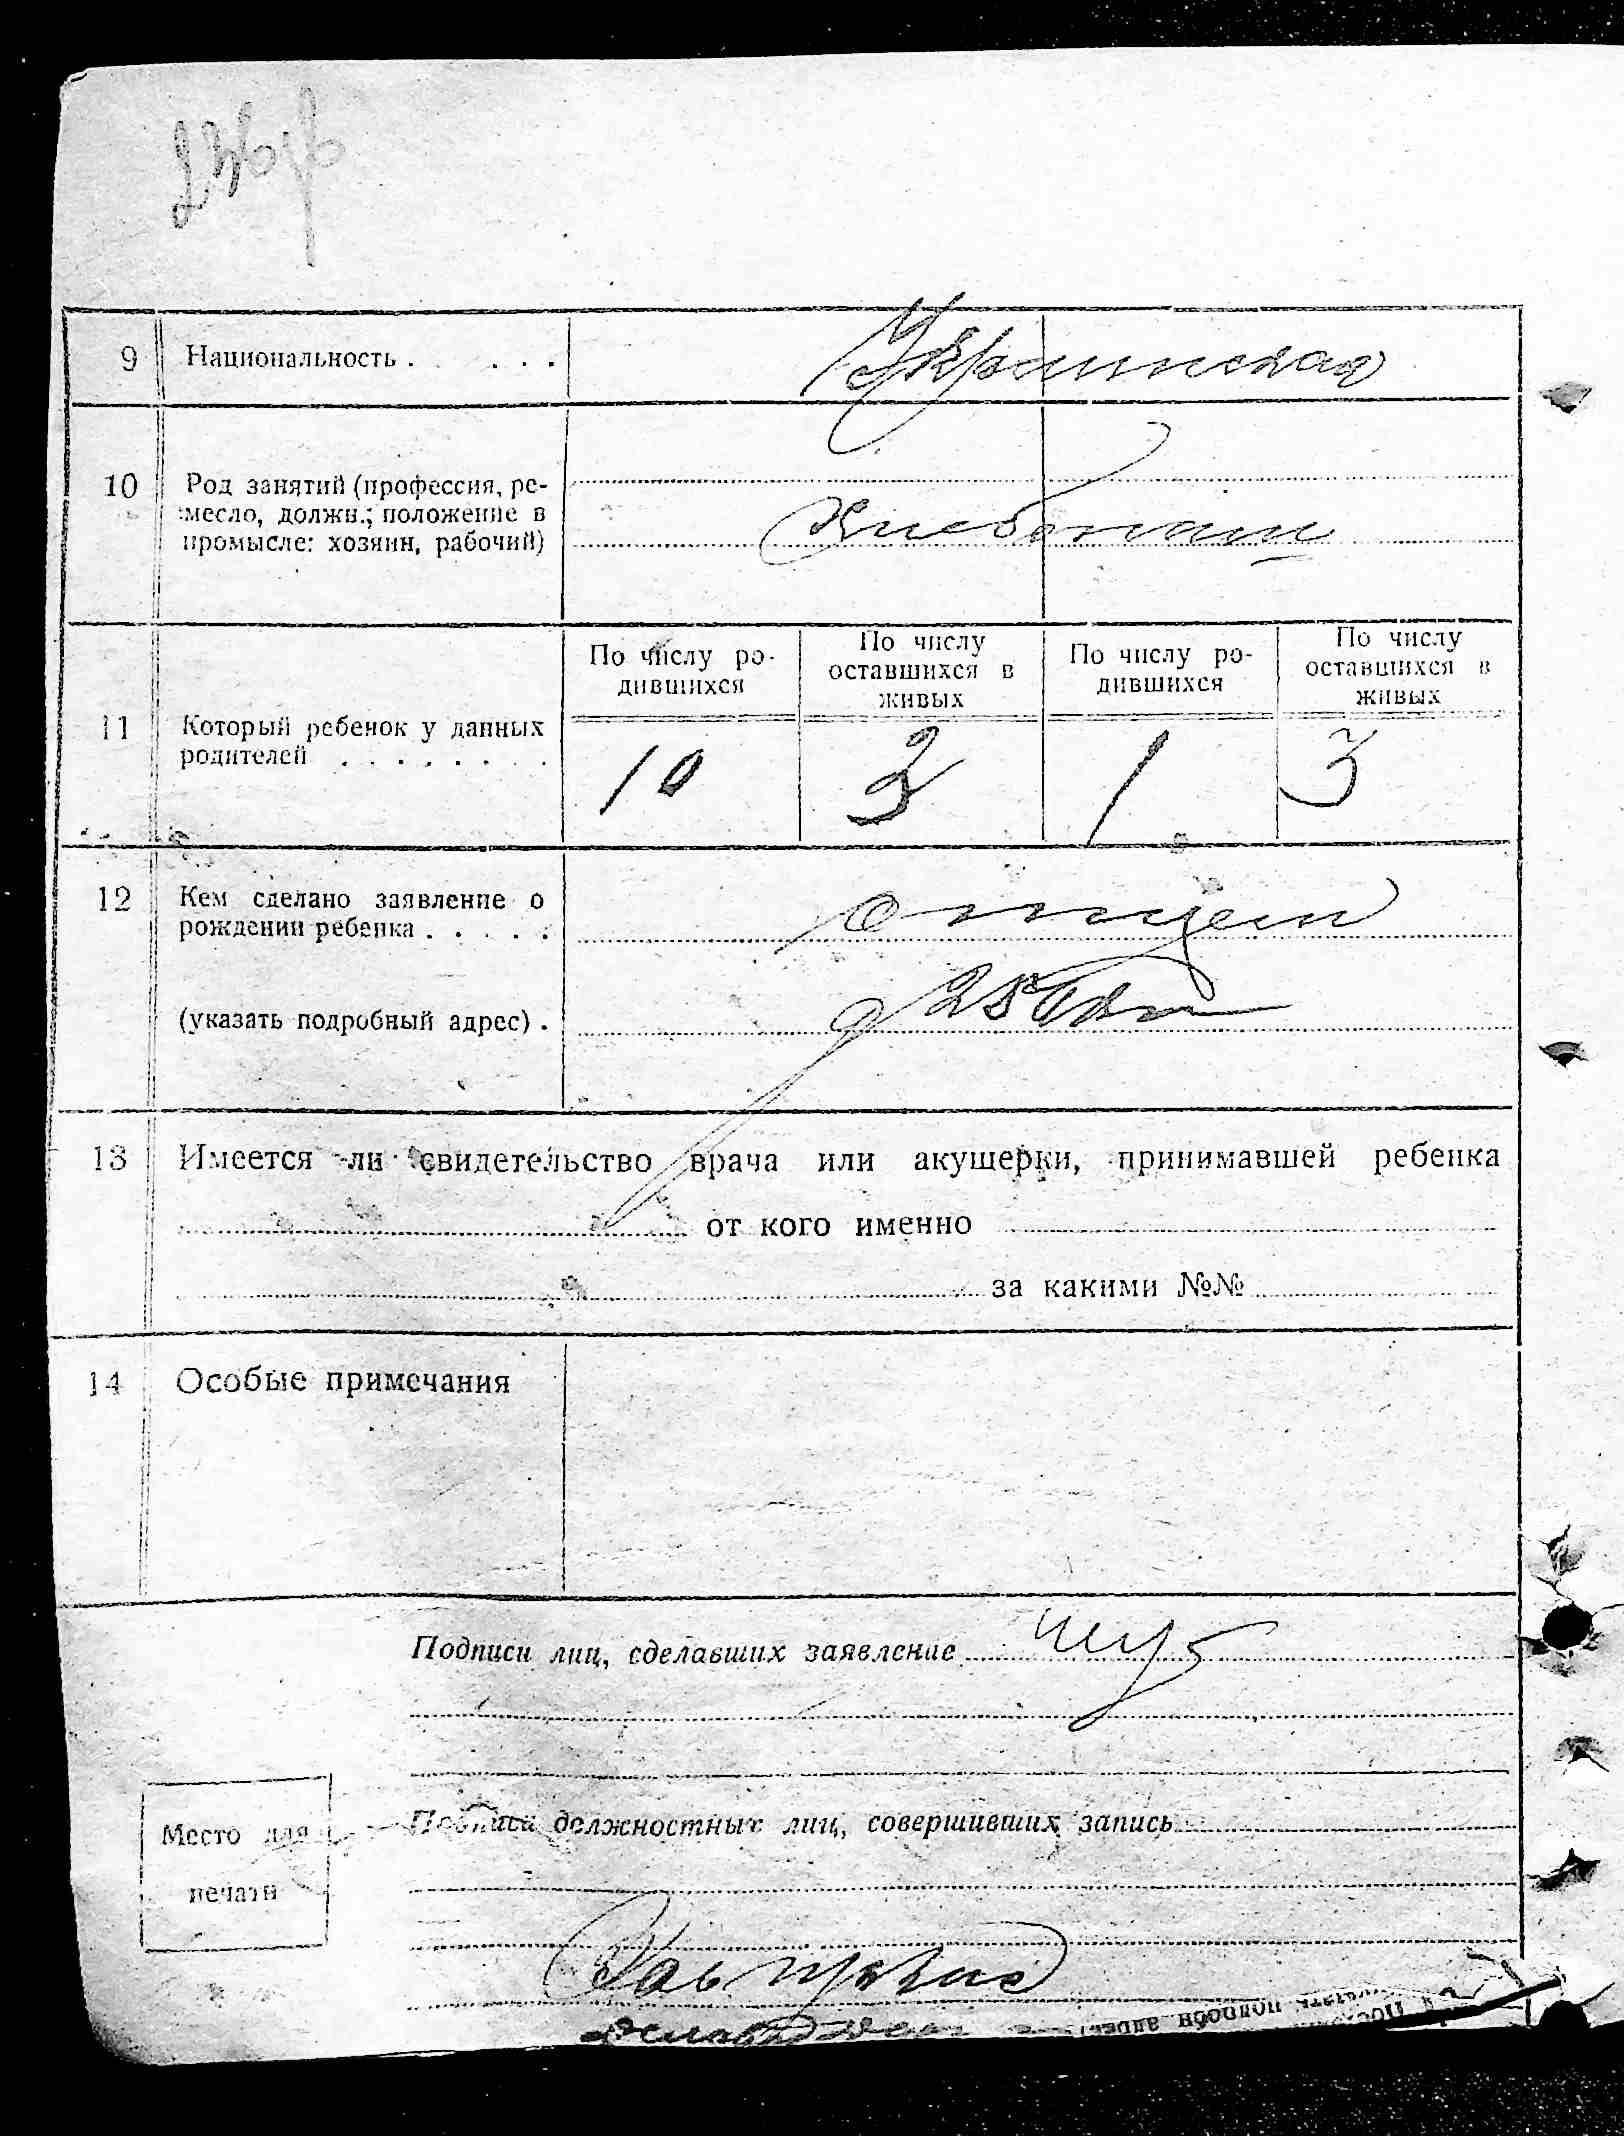 9 Национальность . . . . . Украинская
10 Род занятий (профессия, ре-
месло, должн.; положение в
промысле: хозяин, рабочий)
Хлебопаш
По числу ро-
дившихся
По числу
оставшихся в
живых
По числу ро-
дившихся
По числу
оставшихся в
живых
11 Который ребенок у данных
родителей . . . . . . . .
10 3 1 3
12 Кем сделано заявление о
рождении ребенка . . . . .
отцем
(указать подробный адрес) .
13 Имеется ли свидетельство врача или акушерки, принимавшей ребенка
от кого именно
за какими №№
14 Особые примечания
Подписи лиц, сделавших заявление
Место для
печати
Подписи должностных лиц, совершивших запись